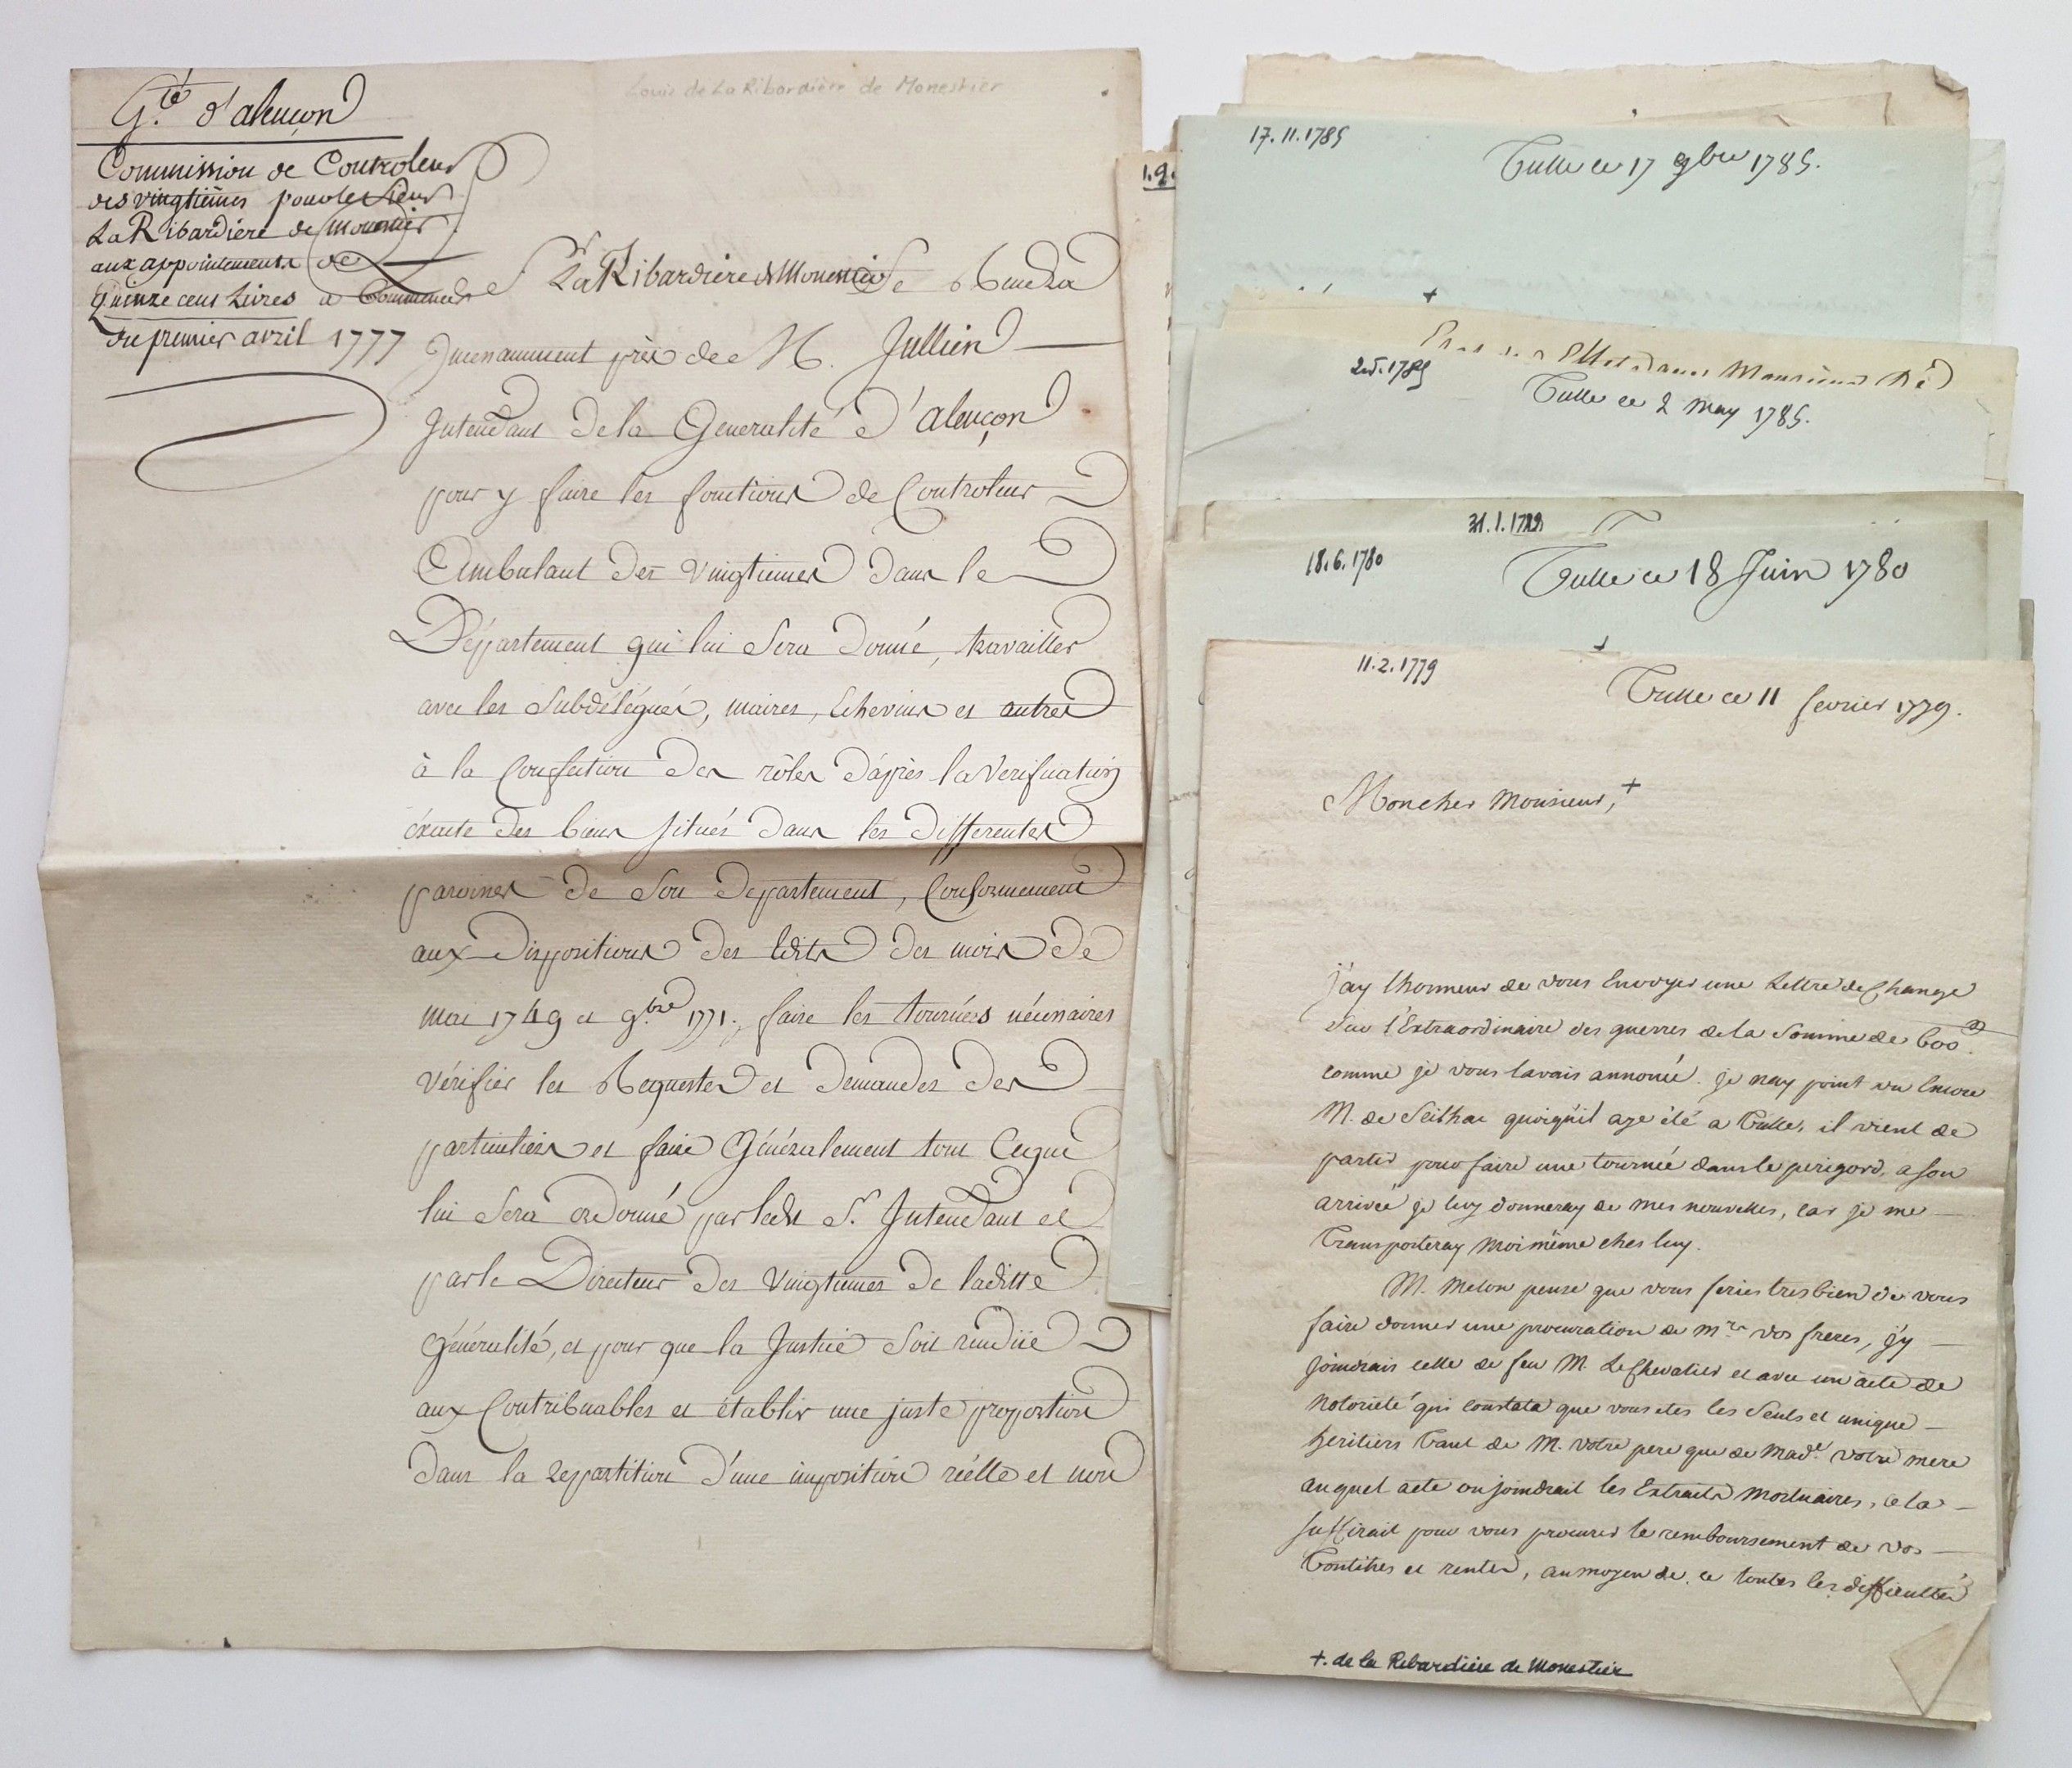 Louis de La Ribardière de Monestier
G.té d'alençon
Commission de Controleur
des vingtiemes pour le Sieur
La Ribardiere de Monestier
aux appointements de
Quinze cens Livres a Commencer
du premier avril 1777
Le Sr. La Ribardiere de Monestier Se Rendra
Incenamment près de M. Jullien
Intendant de la Generalité d'alençon
pour y faire les fonctions de Controleur
Ambulant des vingtiemes dans le
Département qui lui Sera donné, travailler
avec les Subdélégués, maires, Echevins et autres
à la Confection des rôles d'après la Verification
éxacte des biens situés dans les differentes
paroisses de Son Departement, Conformement
aux Dispositions des Edits des mois de
mai 1749 et 9.bre 1771., faire les tournées nécessaires
vérifier les Requestes et Demandes des
particuliers et faire Généralement tout Ceque
lui Sera ordonné par ledit S.r Intendant et
par le Directeur des Vingtiemes de laditte
Généralité, et pour que la Justice Soit renduë
aux Contribuables et établir une juste proportion
dans la repartition d'une imposition réelle et non
1.9.
17.11.1785
Tulle ce 17 9bre 1785.
2.5.1785
Tulle ce 2 may 1785.
31.1.1782
18.6.1780
Tulle ce 18 Juin 1780
11.2.1779
Tulle ce 11 fevrier 1779.
Mon cher Monsieur, +
j'ay lhonneur de vous Envoyer une Lettre de Change
sur l'Extraordinaire des guerres de la Somme de 600.
comme je vous lavais annoncé. je nay point vu Encore
M. de Seilhac quoiqu'il aye été a Tulle, il vient de
partir pour faire une tournée dans le perigord, a son
arrivée je luy donneray de mes nouvelles, car je me
Transporteray moi même ches luy.
M. Melon pense que vous feries tres bien de vous
faire donner une procuration de Mrs. vos freres, j'y
joindrais celle de feu M. Le Chevalier et avec un acte de
Notorieté qui constata que vous etes les Seuls et unique
heritiers Tant de M. votre pere que de Made. votre mere
auquel acte on joindrait les Extraits Mortuaires, cela
suffirait pour vous procurer le remboursement de vos
Tontines et rentes, au moyen de ce toutes les difficultés
+. de la Ribardière de Monestier